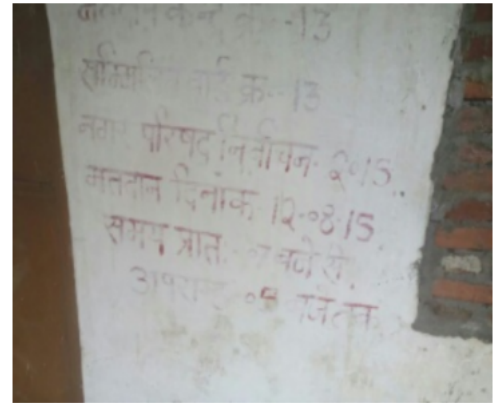 मतदान केन्द्र क्र.-13
सम्मिलित वार्ड क्र.-13
नगर परिषद निर्वाचन-2015
मतदान दिनांक 12.08.15
समय प्रातः बजे से
अपरा बजे तक